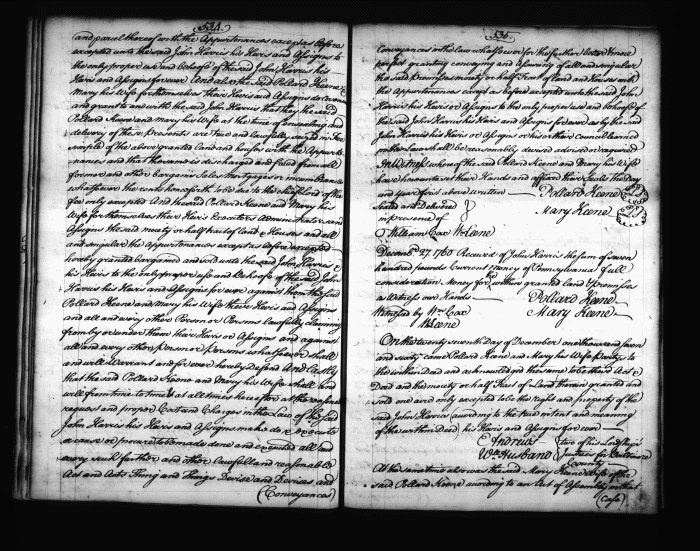 534
and parcel thereof with the Appurtenances except as before
excepted unto the said John Harris his Heirs and Assigns to
the only proper use and behoof of the said John Harris his
Heirs and Assigns for ever And also the said Pollard Keene &
Mary his Wife for themselves their Heirs and Assigns do covenant
and grant to and with the said John Harris that they the said
Pollard Keene and Mary his Wife at the time of ensealing and
delivery of these presents are true and lawfully seized in Fee
simple of the above granted Land and houses with the Appurte
nances and that the same is discharged and freed from all
former and other bargains Sales Mortgages or incumbrances
whatsoever the rents henceforth to be due to the chief Lord of the
fee only excepted And the said Pollard Keene and Mary his
Wife for themselves their Heirs Executors Administrators and
Assigns the said moiety or half part of land & houses and all
and singular the Appurtenances except as before excepted
hereby granted bargained and sold unto the said John Harris &
his Heirs to the only proper use and behoof of the said John
Harris his Heirs and Assigns for ever against them the said
Pollard Keene and Mary his Wife their Heirs and Assigns
and all and every other Person or Persons lawfully claiming
from by or under them their Heirs or Assigns and against
all and every other person or persons whatsoever shall
and will Warrant and for ever hereby defend And Lastly
that the said Pollard Keene and Mary his Wife shall and
will from time to time & at all times hereafter at the reasonable
request and proper Cost and Charges in the Law of the said
John Harris his Heirs and Assigns make do & execute
or cause or procure to be made done and executed all and
every such further and other lawful and reasonable
Act and Acts Thing and Things Devise and Devises and
(Conveyances)
535
Conveyances in the law whatsoever for the further better & more
perfect granting conveying and assuring of all and singular
the said premises moiety or half Tract of land and Houses with
the Appurtenances except as before excepted unto the said John
Harris his Heirs or Assigns to the only proper use and behoof of
the said John Harris his Heirs and Assigns for ever as by the said
John Harris his Heirs or Assigns or his or their Council learned
in the Law shall be reasonably devised advised or required
In Witness whereof the said Pollard Keene and Mary his Wife
have hereunto set their Hands and affixed their Seals the Day
and year first above written — Pollard Keene
Sealed and Delivered
Mary Keene
in presence of
William Cox N Keene
Decembr. 27. 1760 Received of John Harris the sum of seven
hundred pounds Current money of Pennsylvania full
consideration Money for the within granted land & premises
as witness our Hands — Pollard Keene
Witnessed by Wm. Cox Mary Keene
N Keene
On the twenty seventh day of December one thousand seven
and sixty came Pollard Keene and Mary his Wife partys to
the within Deed and acknowledged the same to be their Act &
Deed and the moiety or half Tract of Land therein granted and
sold one and only excepted to be the right and property of the
said John Harris according to the true intent and meaning
of the within Deed his Heirs and Assigns for ever
Andrew two of his Lordship's
Wm. Husband Justices for Baltimore
County
At the same time also was the said Mary Keene Wife of the
said Pollard Keene according to an Act of Assembly in that
(Case)